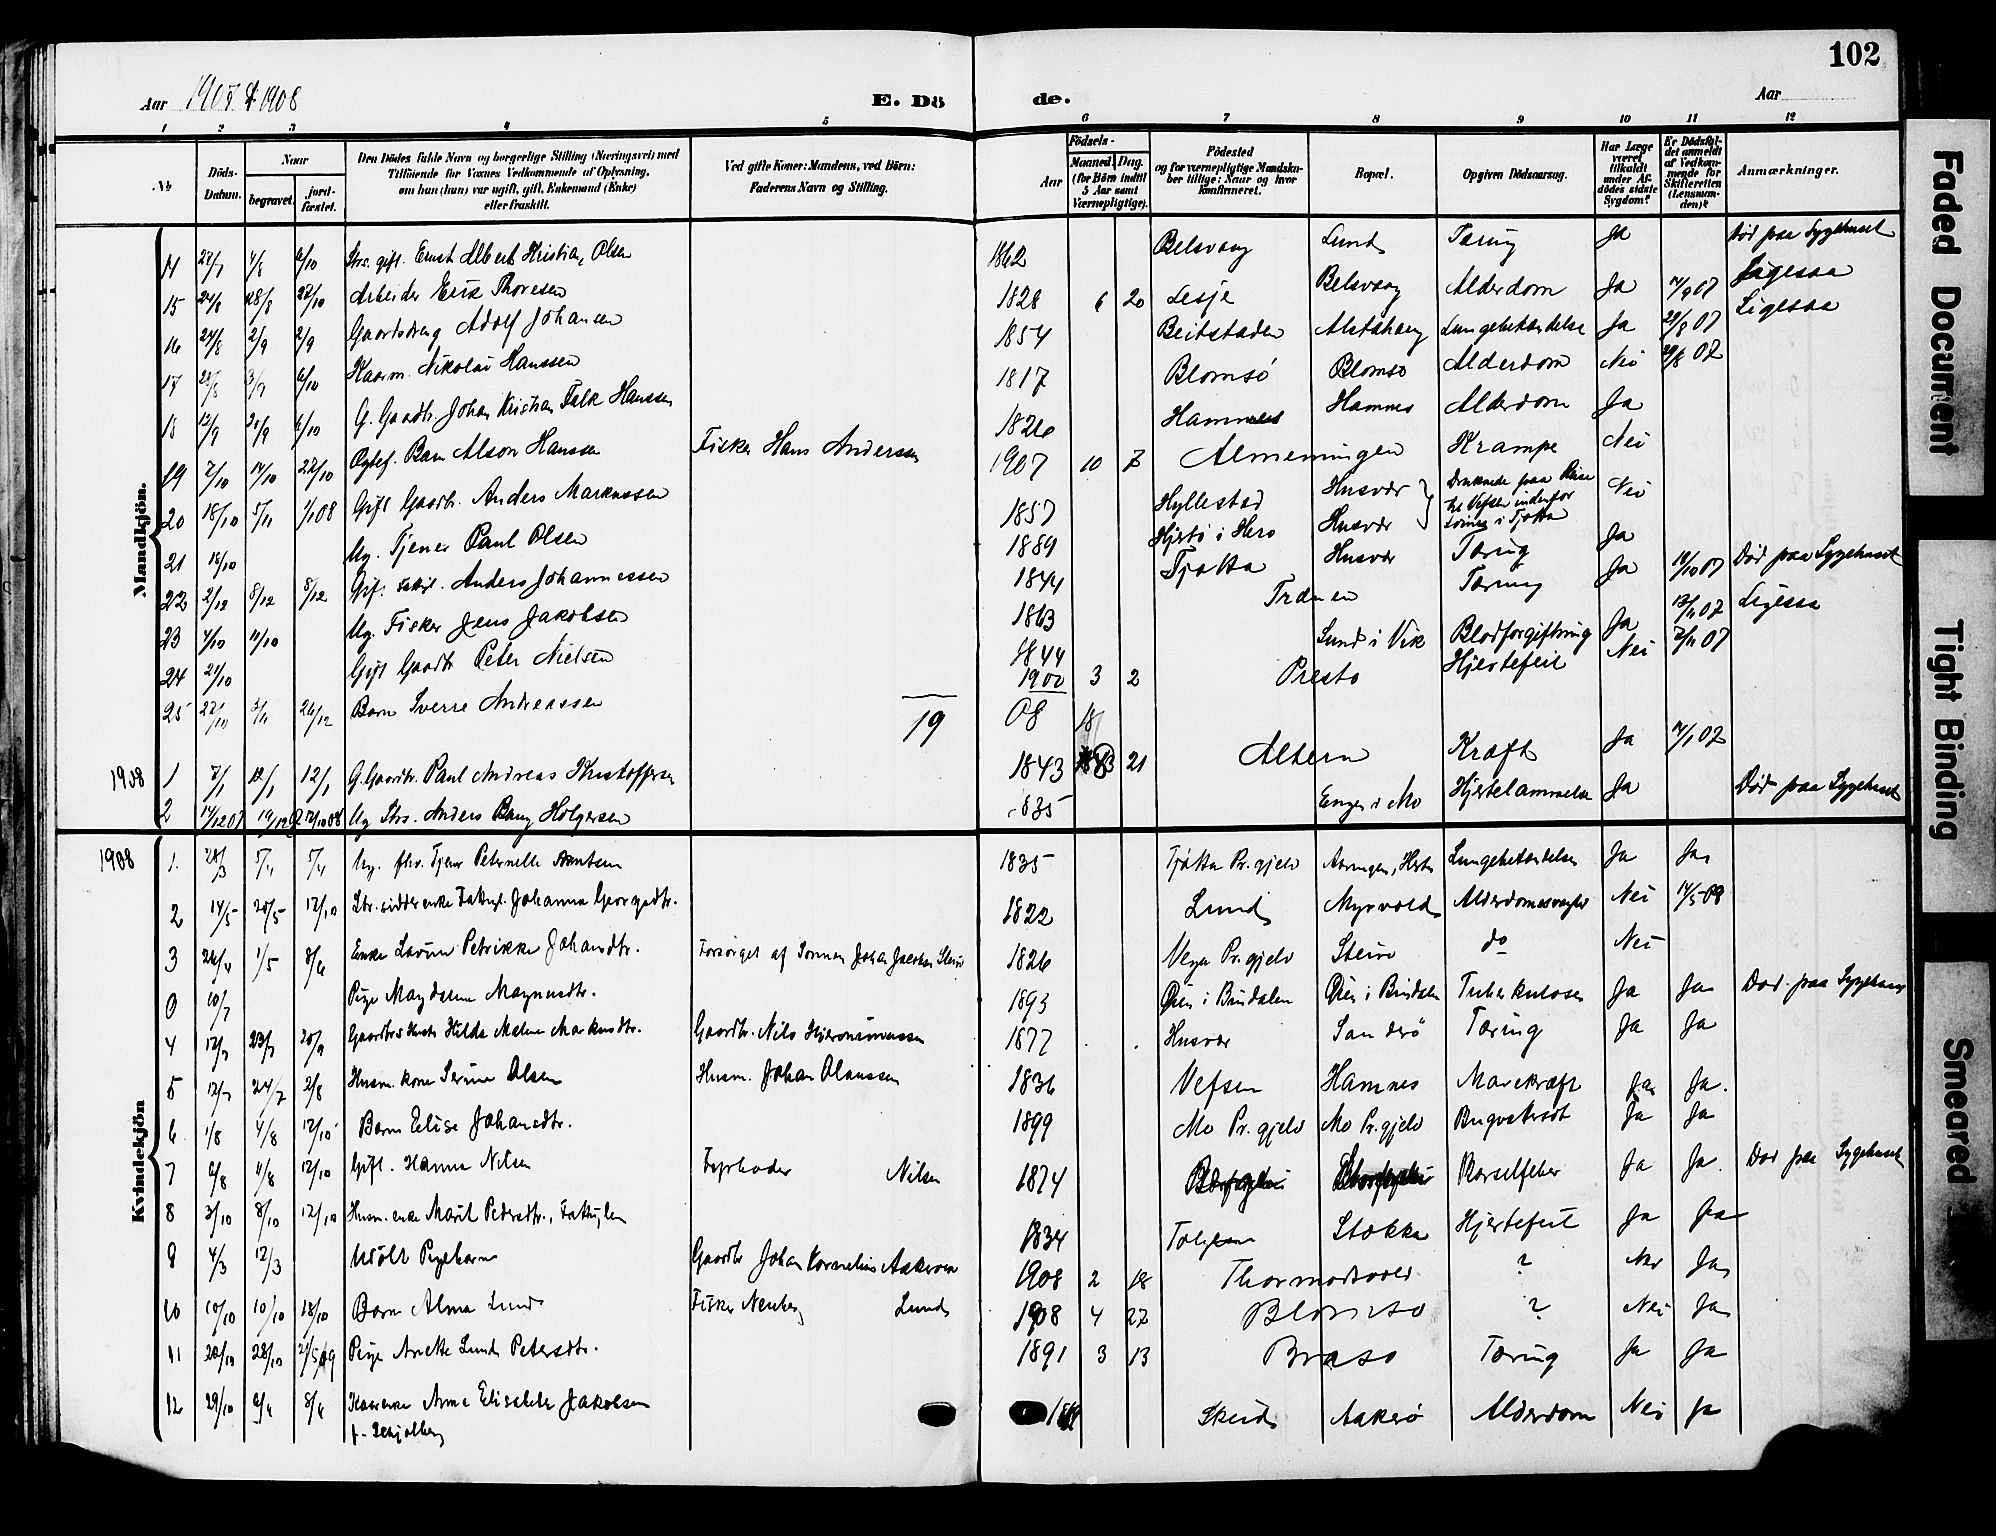 102
Aar 1907 & 1908
E. Dö de.
Aar
1 2 3 4 5 6 7 8 9 10 11 12
No
Döds-Datum.
Naar
begravet.
jord-fæstet.
Den Dödes fulde Navn og borgerlige Stilling (Næringsvei) med Tilföiende for Voxnes Vedkommende af Oplysning, om han (hun) var ugift, gift, Enkemand (Enke) eller fraskilt.
Ved gifte Koner: Mandens, ved Börn: Faderens Navn og Stilling.
Födsels-
Aar
Maaned. Dag.
(for Börn indtil 5 Aar samt Værnepligtige).
Födested og for værnepligtige Mandskaber tillige: Naar og hvor konfirmeret.
Bopæl.
Opgiven Dödsaarsag.
Har Læge været tilkaldt under Afdödes sidste Sygdom?
Er Dödsfaldet anmeldt af Vedkommende for Skifteretten (Lensmanden)?
Anmærkninger.
Mandkjön.
14 6/10 Strs. gift. Ernst Albert Kristian Olsen 1862 Belsvaag Lund Tæring Ja Död paa Sygehuset
15 24/8 28/8 22/10 Arbeider Erik Thoresen 1828 6 20 Lesje Belsvaag Alderdom Ja Ligesaa
16 24/8 2/9 2/9 Adolf Johansen 1854 Beitstaden Alstahaug Lungebetændelse Ja 29/8 07 Ligesaa
17 28/8 3/9 6/10 Kaarm. Nikolai Hanssen 1817 Blomsö Blomsö Alderdom Nei
18 12/9 20/9 6/10 G. Gaardbr. Johan Kristian Falk Hanssen 1826 Hamnes Hamnes Alderdom Ja
19 7/10 14/10 22/10 Ægtef. Barn Alson Hanssen Fisker Hans Anderssen 1907 10 7 Almenningen Krampe Nei
20 18/10 5/11 1/1 08 Gift Gaardbr. Anders Markussen 1857 Hyllestad Husvær Druknede paa Reise fra Vefsen indenfor i Tjötta Nei
21 18/10 Ug. Tjener Paul Olsen 1889 Hjertö i Herö Husvær
22 2/12 8/12 8/12 Gift Anders Johannessen 1844 Tjøtta Husvær Tæring Ja
23 4/10 11/10 Ug. Fisker Jens Jakobsen 1863 Trænen Tæring Ja 18/10 07 Död paa Sygehuset
24 24/10 Gift Gaardbr Peter Nielsen 1844 Sund i Vik Blodforgiftning Ja Ligesaa
25 27/10 3/11 26/12 Barn Sverre Andreassen 1900 3 2 Prestö Hjertefeil Nei 2/11 07
19 08 18
1908 1 7/1 12/1 12/1 G. Gaardbr. Paul Andreas Kristoffersen 1843 21 Altern Kræft Ja
2 14/12 07 19/12 07 Ug Strs. Anders Bang Holgersen 835 Enge i Mo Hjertelammelse Ja Död paa Sygehuset
Kvindekjön
1908 1. 28/3 5/4 5/4 Ug. fhv. Tjener Peternelle Arntsen 1835 Tjøtta Pr. gjeld Lungebetændelse Ja Ja
2 14/5 20/5 12/10 Johanna Georgsdtr. 1822 Lund Myrvold Alderdomssvaghed Nei 14/5 08
3 26/4 1/5 8/6 Enke Lovise Petrikke Johansdtr. Forsörget af Sönnen Johan 1826 Vega Pr. gjeld do Nei
0 10/7 Pige Magdalena Magnusdtr. 1893 Øien i Bindalen Øien i Bindalen Tuberkulose Ja Ja Död paa Sygehuset
4 12/7 23/7 20/9 Hilda Malene Markusdtr. Gaardbr. Nils Hjeronimussen 1877 Husvær Sanderö Tæring Ja Ja
5 12/7 24/7 2/8 Husm. kone Serine Olsen Husm. Johan Olaussen 1836 Vefsen Hamnes Mavekræft Ja Ja.
6 1/8 4/8 12/10 Barn Elise Johansdtr. 1899 Mo Pr. gjeld Mo Pr. gjeld Bugvatersot Ja Ja
7 6/8 11/8 12/10 Gift. Hanna Nilsen Fyrböder Nilsen 1874 Barselfeber Ja Ja. Död paa Sygehuset
8 3/10 8/10 12/10 Husm. enke Marit Pedersdtr., Fattiglem 1834 Tolgen Stokka Hjertefeil Ja Ja
9 4/3 12/3 Udöbt Pigebarn Gaardbr Johan Kornelius Aakerøen 1908 2 18 Thormodsvold ? Nei Ja
10 10/10 10/10 18/10 Barn Alma Lund Fisker Lund 1908 4 27 Blomsö ? Nei Ja
11 20/10 28/10 Pige Anette Lund Petersdtr. 1891 3 13 Brasö Tæring Ja Ja
12 29/10 8/6 Kaarenke Anna Elisabeth Jakobsen Skeid Aakerö Alderdom Nei Ja
Faded Document
Tight Binding
Smeared